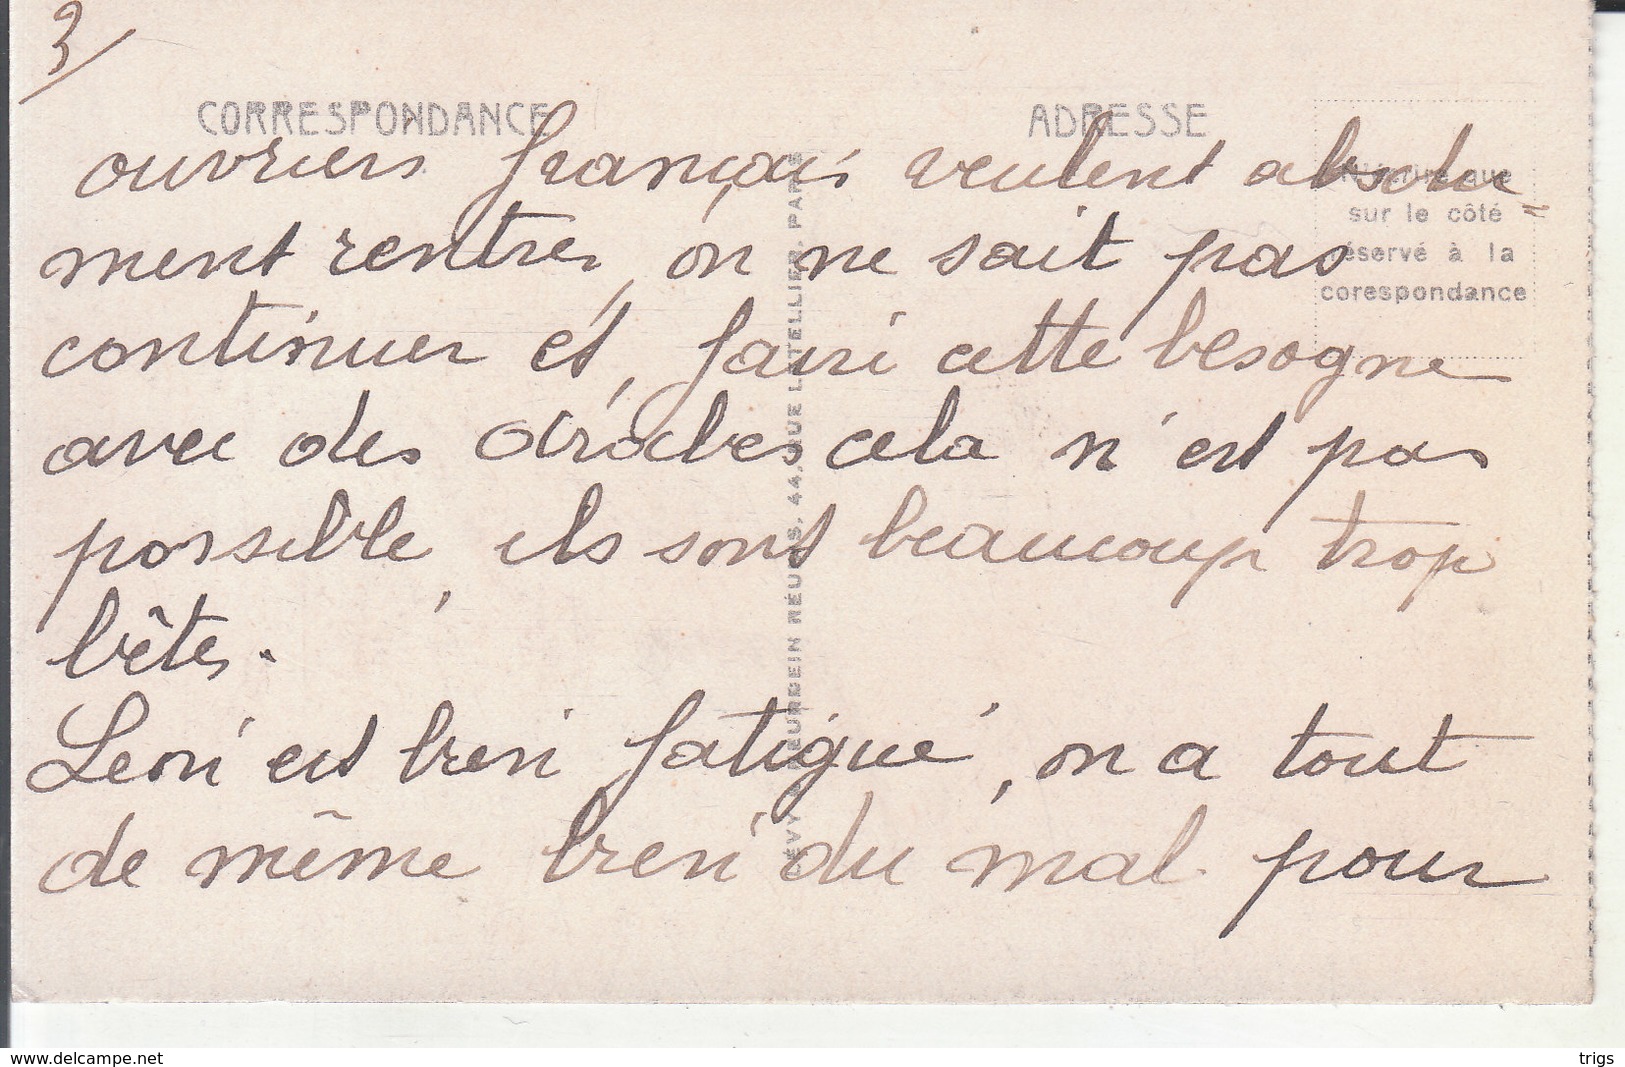 3/
CORRESPONDANCE
ADRESSE
ouvriers français veulent absolu
N'écrire que
sur le côté
réservé à la
corespondance
ment rentrer, on ne sait pas
continuer et, faire cette besogne
avec des arabes cela n'est pas
possible, ils sont beaucoup trop
bêtes.
Léon est bien fatigué, on a tout
de même bien du mal pour
LÉVY & NEURDEIN RÉUNIS, 44, RUE LETELLIER, PARIS
www.delcampe.net
trigs